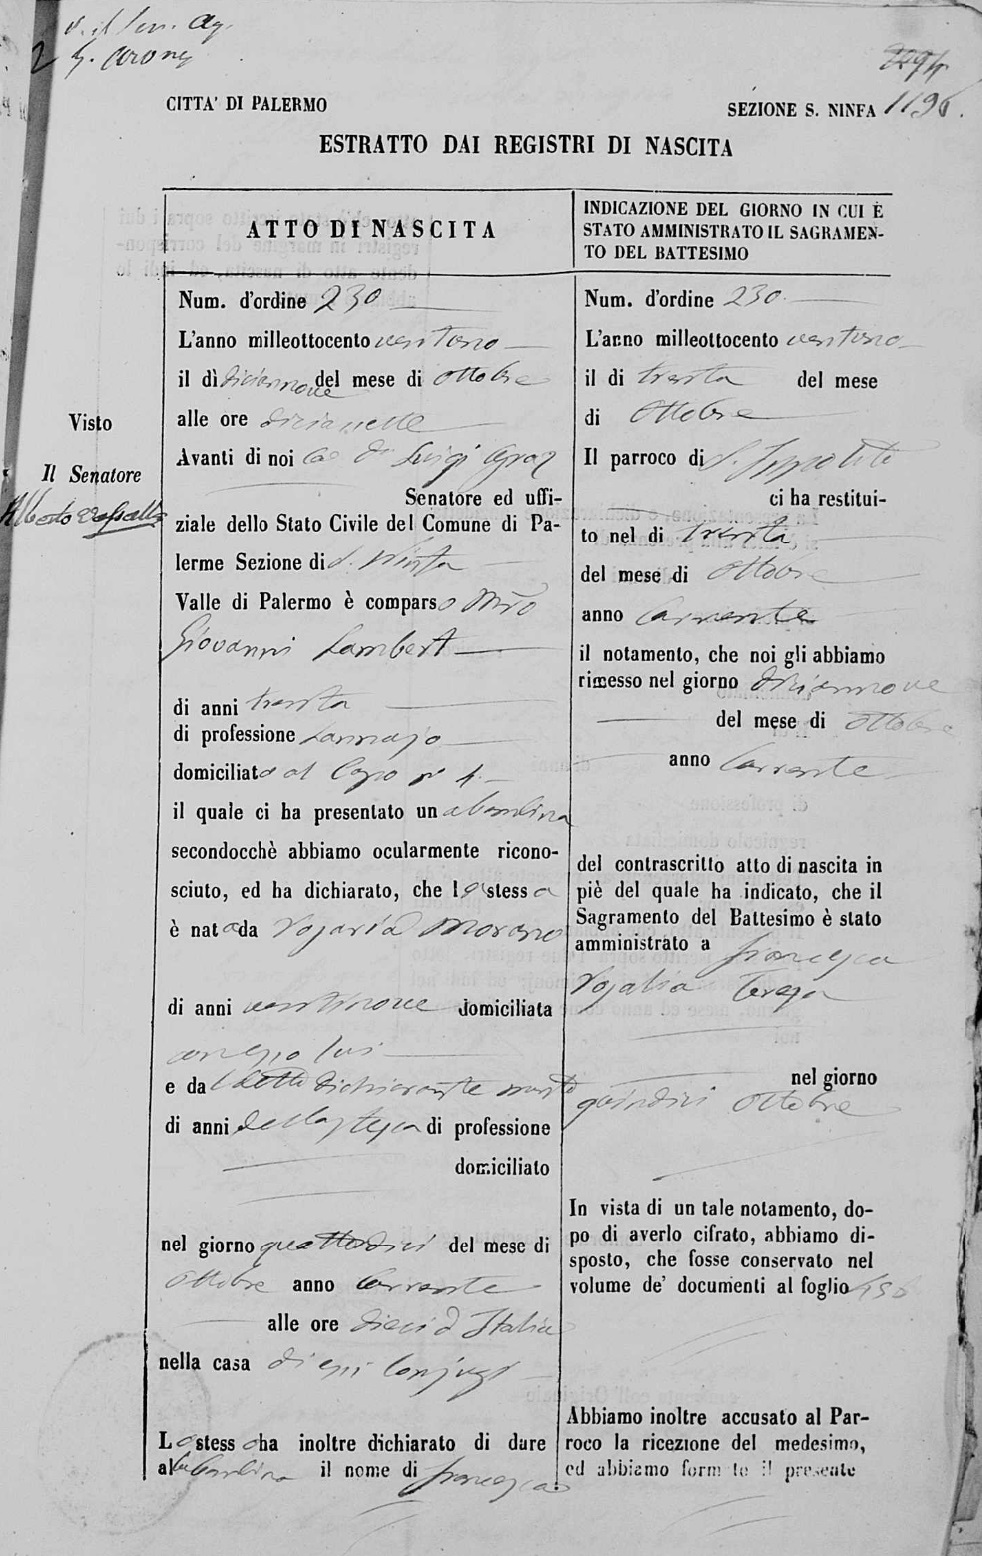 CITTA' DI PALERMO
SEZIONE S. NINFA 1196.
ESTRATTO DAI REGISTRI DI NASCITA
ATTO DI NASCITA
Num. d'ordine 230
L'anno milleottocento ventuno
il dì diciannove del mese di Ottobre
alle ore diciasette
Avanti di noi Luigi
Senatore ed uffi-
ziale dello Stato Civile del Comune di Pa-
lerme Sezione di S. Ninfa
Valle di Palermo è comparso Mro
Giovanni Lambert
di anni trenta
di professione Lannajo
domiciliato al Capo n° 4.
il quale ci ha presentato una bambina
secondocchè abbiamo ocularmente ricono-
sciuto, ed ha dichiarato, che la stessa
è nata da Rosaria Morano
di anni ventinove domiciliata
con esso lui
e dal detto dichiarante
di anni di professione
domiciliato
nel giorno quattordici del mese di
Ottobre anno Corrente
alle ore dieci d'Italia
nella casa di essi Conjugi
Lo stesso ha inoltre dichiarato di dare
alla bambina il nome di Francesca
Visto
Il Senatore
Alberto
INDICAZIONE DEL GIORNO IN CUI È
STATO AMMINISTRATO IL SAGRAMEN-
TO DEL BATTESIMO
Num. d'ordine 230
L'anno milleottocento ventuno
il di trenta del mese
di Ottobre
Il parroco di S. Ippolito
ci ha restitui-
to nel di trenta
del mese di Ottobre
anno Corrente
il notamento, che noi gli abbiamo
rimesso nel giorno diciannove
del mese di Ottobre
anno Corrente
del contrascritto atto di nascita in
piè del quale ha indicato, che il
Sagramento del Battesimo è stato
amministrato a Francesca
Rosalia Teresa
nel giorno
quindici Ottobre
In vista di un tale notamento, do-
po di averlo cifrato, abbiamo di-
sposto, che fosse conservato nel
volume de' documenti al foglio
Abbiamo inoltre accusato al Par-
roco la ricezione del medesimo,
ed abbiamo form to il presente